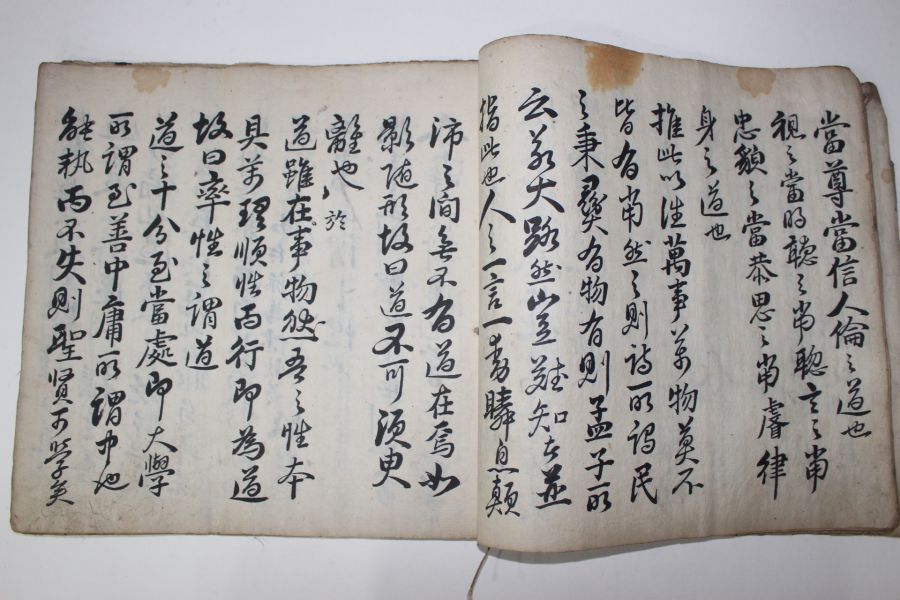 當尊當信人倫之道也
視之當明聽之當聰言之當
忠貌之當恭思之當睿律
身之道也
推此以往萬事萬物莫不
皆有當然之則詩所謂民
之秉彛有物有則孟子所
云若大路然豈難知者並
指此也人之一言一動瞬息顚
沛之間無不有道在焉如
影隨形故曰道不可須臾
離也 於
道雖在事物然吾之性本
具萬理順性而行即為道
故曰率性之謂道
道之十分至當處即大學
所謂至善中庸所謂中也
能執而不失則聖賢可學矣